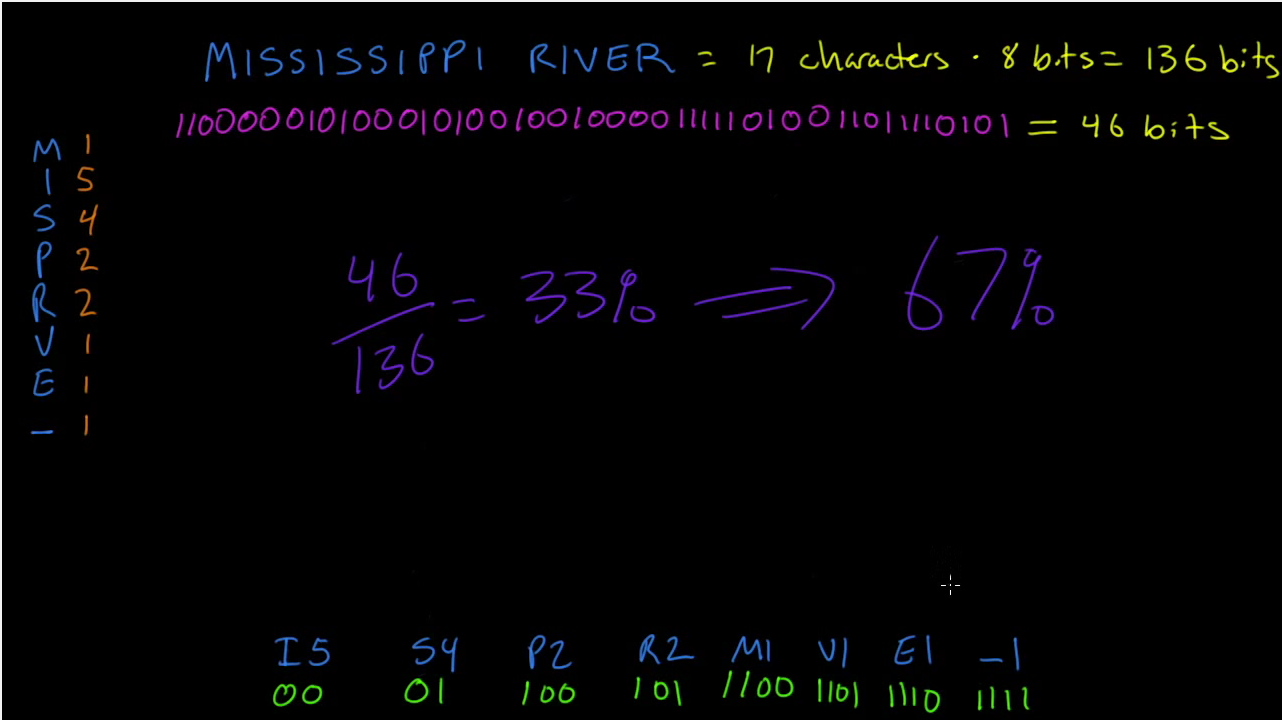 MISSISSIPPI RIVER = 17 characters · 8 bits = 136 bits
1100000101000101001001000011111010011011110101 = 46 bits
M 1
I 5
S 4
P 2
R 2
V 1
E 1
_ 1
46/136 = 33% ⟹ 67%
I5 S4 P2 R2 M1 V1 E1 _1
00 01 100 101 1100 1101 1110 1111